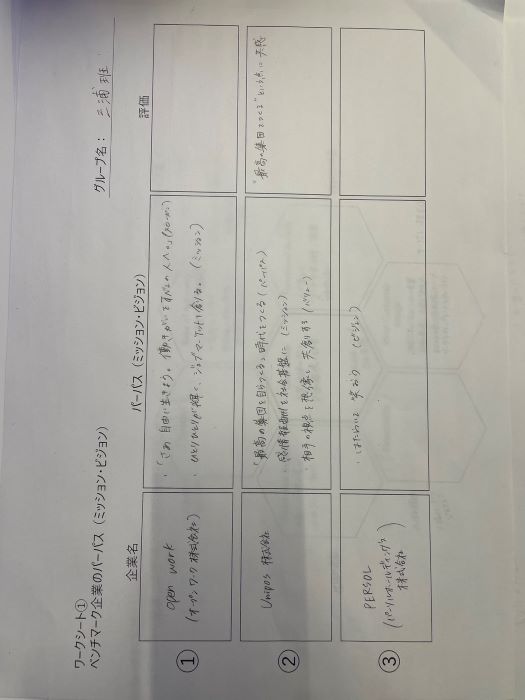 ワークシート①
ベンチマーク企業のパーパス（ミッション・ビジョン）
グループ名： 三浦班
企業名
パーパス（ミッション・ビジョン）
評価
①
open work
(オープンワーク株式会社)
・「さあ 自由に生きよう。働きがいをすべての人へ。」(スローガン)
・ひとりひとりが輝く、ジョブマーケットを創る。(ミッション)
②
Unipos 株式会社
「最高の集団を自らつくる」時代をつくる (パーパス)
感情報酬を社会基盤に (ミッション)
・相手の視点を想像し 共創する (バリュー)
"最高の集団をつくる"という点に 共感
③
PERSOL
(パーソルホールディングス
株式会社)
・はたらいて 笑おう (ビジョン)